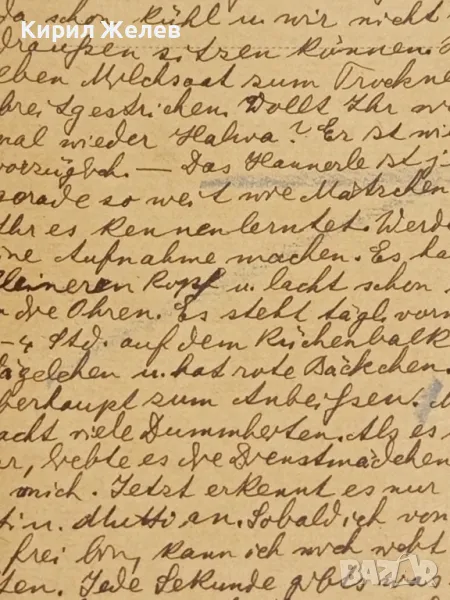 Кирил Желев
da schon kühl u. wir nicht
draußen sitzen können.
eben Milchsaat zum Trockne
breitgestrichen. Wollt Ihr
mal wieder Halwa? Er ist
vorzüglich. — Das Hannerle ist
gerade so weit wie Mätschen
Ihr es kennenlerntet. Werde
ine Aufnahme machen. Es ha
kleineren Kopf u. lacht schon
die Ohren. Es steht tägl. vorm
–4 Std. auf dem Küchenbalk
ägelchen u. hat rote Bäckchen.
berhaupt zum Anbeißen.
acht viele Dummheiten. Als es
r, liebte es die Dienstmädchen
mich. Jetzt erkennt es nur
ti u. Mutti an. Sobald ich von
frei bin, kann ich mich
ten. Jede Sekunde gibts was
bazar